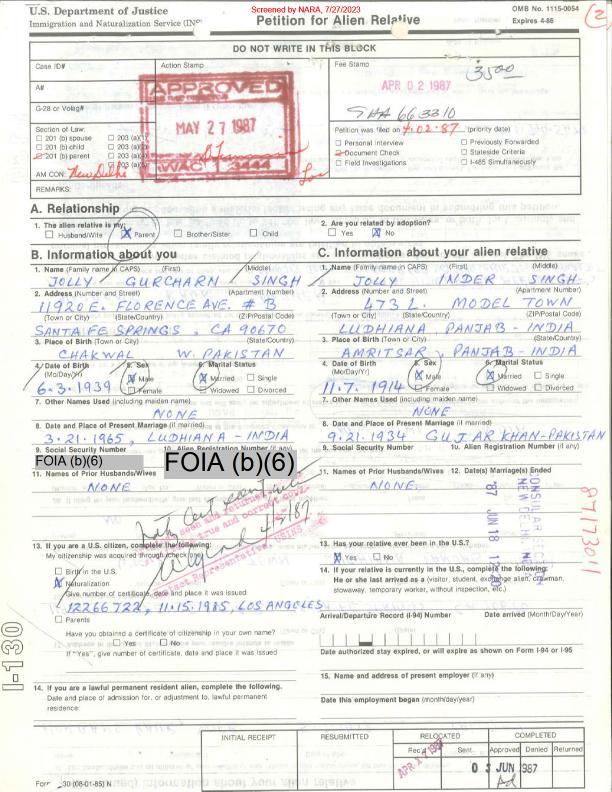 U.S. Department of Justice
Immigration and Naturalization Service (INS)
Screened by NARA, 7/27/2023
Petition for Alien Relative
OMB No. 1115-0054
Expires 4-86
2
DO NOT WRITE IN THIS BLOCK
Case ID#
Action Stamp
Fee Stamp
A#
G-28 or Volag#
APPROVED
MAY 27 1987
WAC 1 3444
APR 02 1987
3500
SHA 663310
Section of Law:
201 (b) spouse 203 (a)(1)
201 (b) child 203 (a)(2)
201 (b) parent 203 (a)(4)
203 (a)(5)
AM CON: New Delhi
Petition was filed on 4.02.87 (priority date)
Personal Interview Previously Forwarded
Document Check Stateside Criteria
Field Investigations I-485 Simultaneously
REMARKS:
A. Relationship
1. The alien relative is my:
Husband/Wife X Parent Brother/Sister Child
2. Are you related by adoption?
Yes X No
B. Information about you
1. Name (Family name in CAPS) (First) (Middle)
JOLLY GURCHARN SINGH
2. Address (Number and Street) (Apartment Number)
11920 E. FLORENCE AVE. # B
(Town or City) (State/Country) (ZIP/Postal Code)
SANTA FE SPRINGS, CA 90670
3. Place of Birth (Town or City) (State/Country)
CHAKWAL W. PAKISTAN
4. Date of Birth (Mo/Day/Yr)
6.3.1939
5. Sex
X Male
Female
6. Marital Status
X Married Single
Widowed Divorced
7. Other Names Used (including maiden name)
NONE
8. Date and Place of Present Marriage (if married)
3.21.1965, LUDHIANA - INDIA
9. Social Security Number 10. Alien Registration Number (if any)
FOIA (b)(6) FOIA (b)(6)
11. Names of Prior Husbands/Wives
NONE
13. If you are a U.S. citizen, complete the following:
My citizenship was acquired through (check one)
Birth in the U.S.
X Naturalization
Give number of certificate, date and place it was issued
12266722, 11.15.1985, LOS ANGELES
Parents
Have you obtained a certificate of citizenship in your own name?
Yes No
If "Yes", give number of certificate, date and place it was issued
14. If you are a lawful permanent resident alien, complete the following.
Date and place of admission for, or adjustment to, lawful permanent
residence:
C. Information about your alien relative
1. Name (Family name in CAPS) (First) (Middle)
JOLLY INDER SINGH
2. Address (Number and Street) (Apartment Number)
473 L. MODEL TOWN
(Town or City) (State/Country) (ZIP/Postal Code)
LUDHIANA PANJAB - INDIA
3. Place of Birth (Town or City) (State/Country)
AMRITSAR, PANJAB - INDIA
4. Date of Birth (Mo/Day/Yr)
11.7.1914
5. Sex
X Male
Female
6. Marital Status
X Married Single
Widowed Divorced
7. Other Names Used (including maiden name)
NONE
8. Date and Place of Present Marriage (if married)
9.21.1934 GUJAR KHAN-PAKISTAN
9. Social Security Number 10. Alien Registration Number (if any)
11. Names of Prior Husbands/Wives 12. Date(s) Marriage(s) Ended
NONE
CONSULAR SECTION
NEW DELHI
'87 JUN 18
8713011
13. Has your relative ever been in the U.S.?
X Yes No
14. If your relative is currently in the U.S., complete the following:
He or she last arrived as a (visitor, student, exchange alien, crewman,
stowaway, temporary worker, without inspection, etc.)
Arrival/Departure Record (I-94) Number Date arrived (Month/Day/Year)
Date authorized stay expired, or will expire as shown on Form I-94 or I-95
15. Name and address of present employer (if any)
Date this employment began (month/day/year)
I-130
INITIAL RECEIPT RESUBMITTED RELOCATED COMPLETED
Rec'd Sent Approved Denied Returned
03 JUN 1987
Form I-130 (08-01-85) N